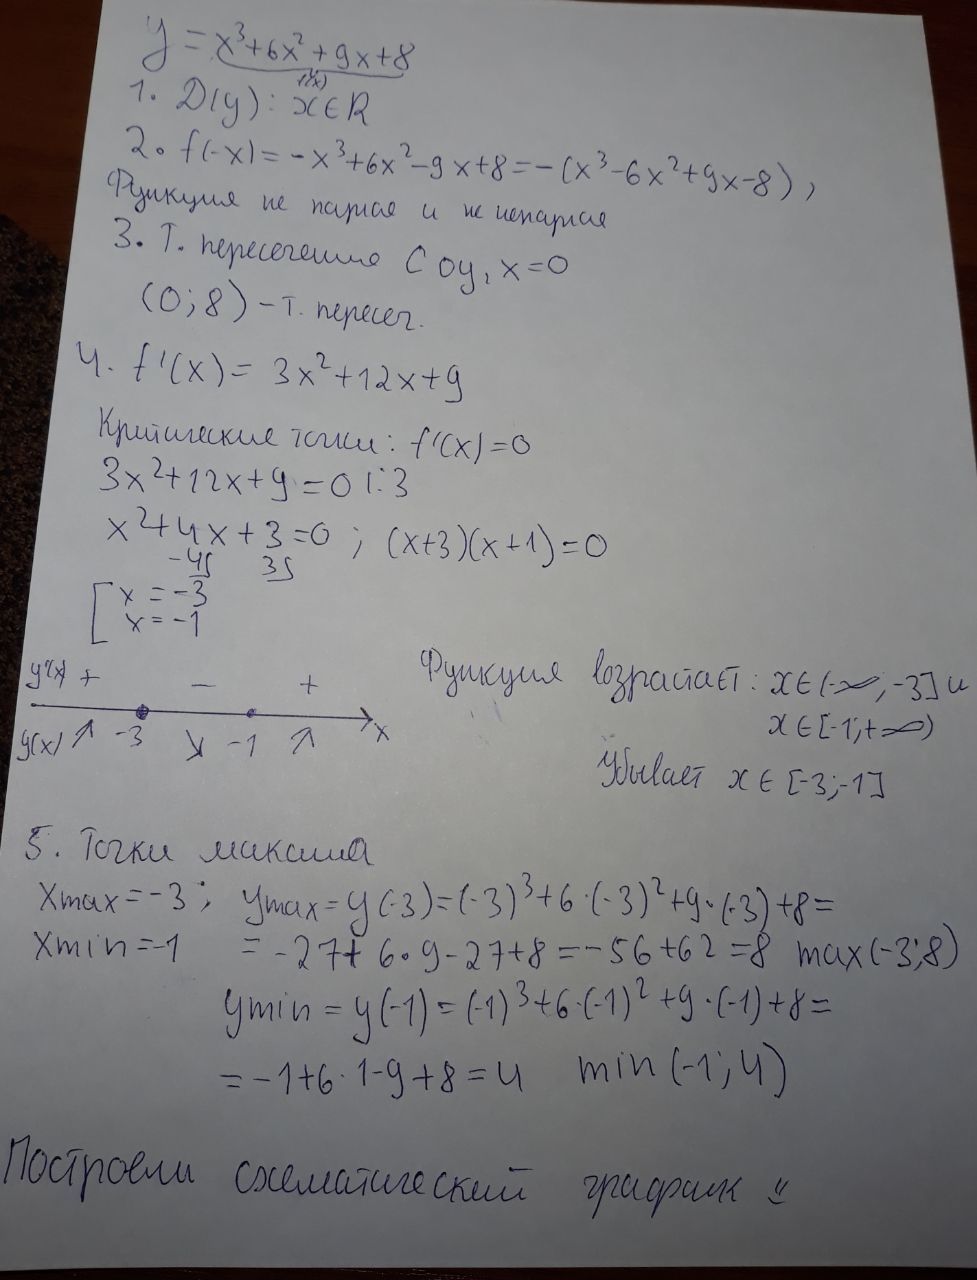 y = x³+6x²+9x+8
f(x)
1. D(y): x∈R
2. f(-x) = -x³+6x²-9x+8=-(x³-6x²+9x-8),
Функция не парная и не непарная
3. Т. пересечения С oy, x=0
(0;8) - т. пересеч.
4. f'(x) = 3x²+12x+9
Критические точки: f'(x)=0
3x²+12x+9=0 |:3
x²+4x+3=0 ; (x+3)(x+1)=0
[ x = -3
x = -1
y'(x) + − +
y(x) ↗ -3 ↘ -1 ↗ x
Функция возрастает: x∈(-∞;-3] и
x∈[-1;+∞)
Убывает x∈[-3;-1]
5. Точки
xmax=-3; ymax=y(-3)=(-3)³+6·(-3)²+9·(-3)+8=
xmin=-1 = -27+6·9-27+8=-56+62=8 max(-3;8)
ymin = y(-1) = (-1)³+6·(-1)²+9·(-1)+8=
= -1+6·1-9+8=4 min(-1;4)
схематический график